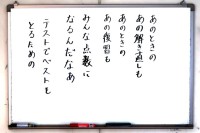 あのときの
あの解き直しも
あのときの
あの復習も
みんな点数に
なるんだなあ
テストでベストも
とるための